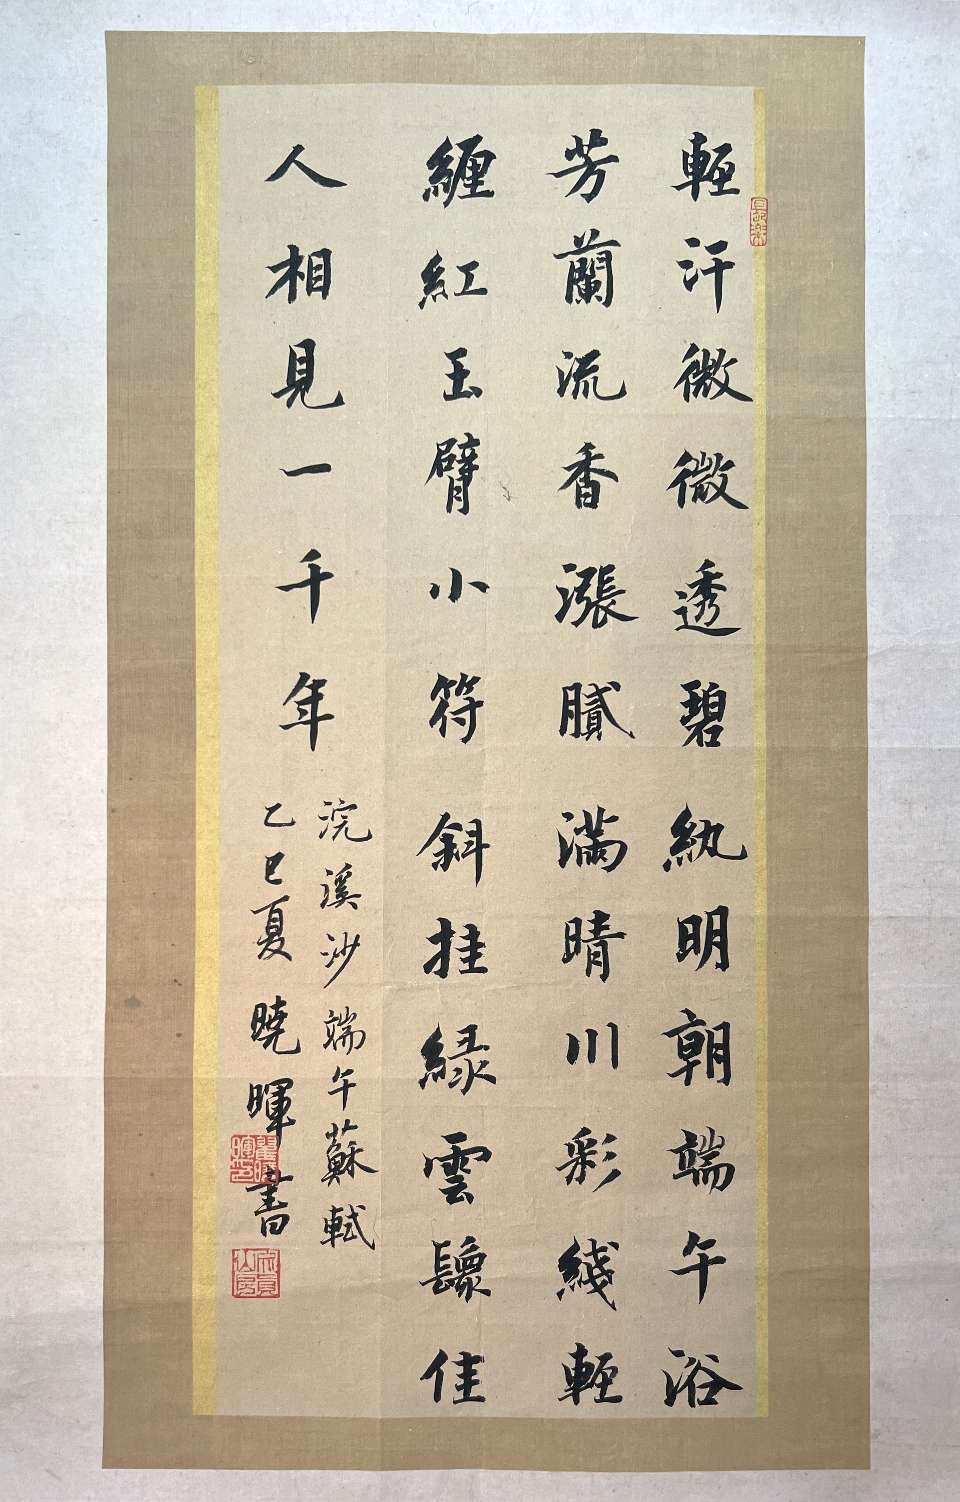 輕汗微微透碧紈明朝端午浴
芳蘭流香漲膩滿晴川彩綫輕
纏紅玉臂小符斜挂綠雲鬟佳
人相見一千年
浣溪沙端午蘇軾
乙巳夏曉暉書